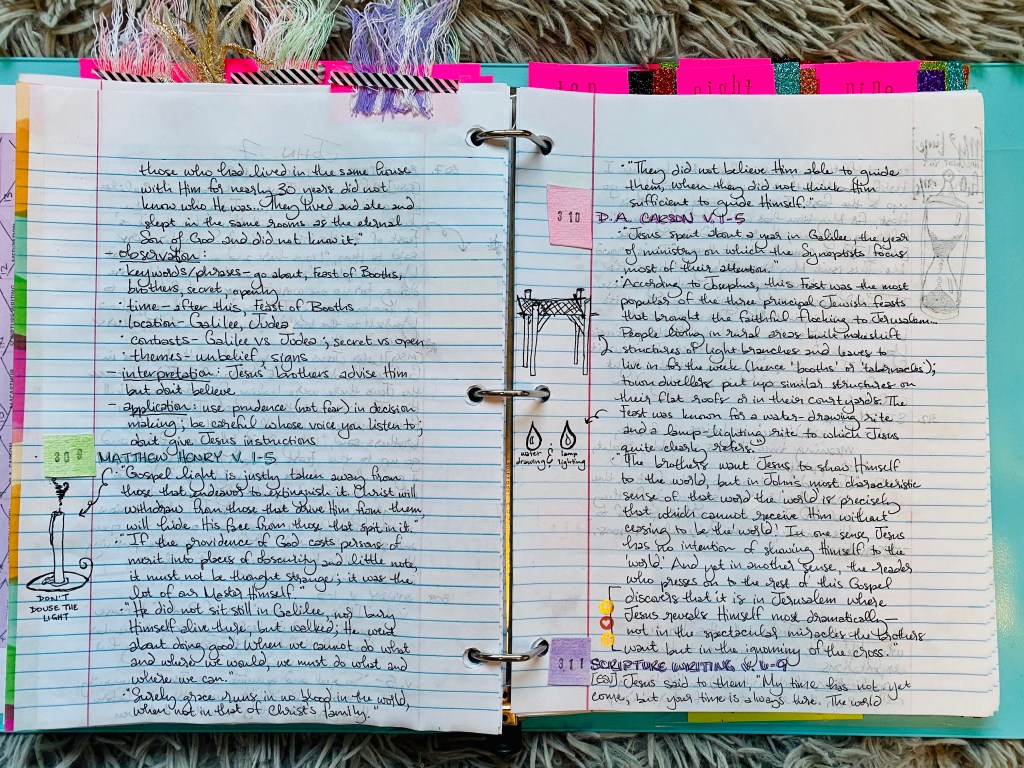 ten
eight
nine
those who had lived in the same house
with Him for nearly 30 years did not
know who He was... They lived and ate and
slept in the same rooms as the eternal
Son of God and did not know it."
- observation:
· keywords/phrases - go about, Feast of Booths,
brothers, secret, openly
· time - after this, Feast of Booths
· location - Galilee, Judea
· contrasts - Galilee vs Judea; secret vs open
· themes - unbelief, signs
- interpretation: Jesus' brothers advise Him
but don't believe
- application: use prudence (not fear) in decision
making; be careful whose voice you listen to;
don't give Jesus instructions
309 MATTHEW HENRY V. 1-5
· "Gospel light is justly taken away from
those that endeavor to extinguish it. Christ will
withdraw from those that drive Him from them,
will hide His face from those that spit in it."
· "If the providence of God casts persons of
merit into places of obscurity and little note,
it must not be thought strange; it was the
lot of our Master Himself."
· "He did not sit still in Galilee, nor bury
Himself alive there, but walked; He went
about doing good. When we cannot do what
and where we would, we must do what and
where we can."
· "Surely grace runs in no blood in the world,
when not in that of Christ's family."
DON'T
DOUSE THE
LIGHT
· "They did not believe Him able to guide
them, when they did not think Him
sufficient to guide Himself."
310 D.A. CARSON V. 1-5
· "Jesus spent about a year in Galilee, the year
of ministry on which the Synoptists focus
most of their attention."
· "According to Josephus, this Feast was the most
popular of the three principal Jewish feasts
that brought the faithful flocking to Jerusalem...
People living in rural areas built makeshift
structures of light branches and leaves to
live in for the week (hence 'booths' or 'tabernacles');
town dwellers put up similar structures on
their flat roofs or in their courtyards. The
Feast was known for a water-drawing rite
and a lamp-lighting rite to which Jesus
quite clearly refers."
water drawing & lamp lighting
· "The brothers want Jesus to show Himself
to the world, but in John's most characteristic
sense of that word the 'world' is precisely
that which cannot receive Him without
ceasing to be the 'world'. In one sense, Jesus
has no intention of showing Himself to the
'world'. And yet in another sense, the reader
who presses on to the rest of this Gospel
discovers that it is in Jerusalem where
Jesus reveals Himself most dramatically—
not in the spectacular miracles the brothers
want but in the ignominy of the cross."
311 SCRIPTURE WRITING V. 6-9
[ESV] Jesus said to them, "My time has not yet
come, but your time is always here. The world